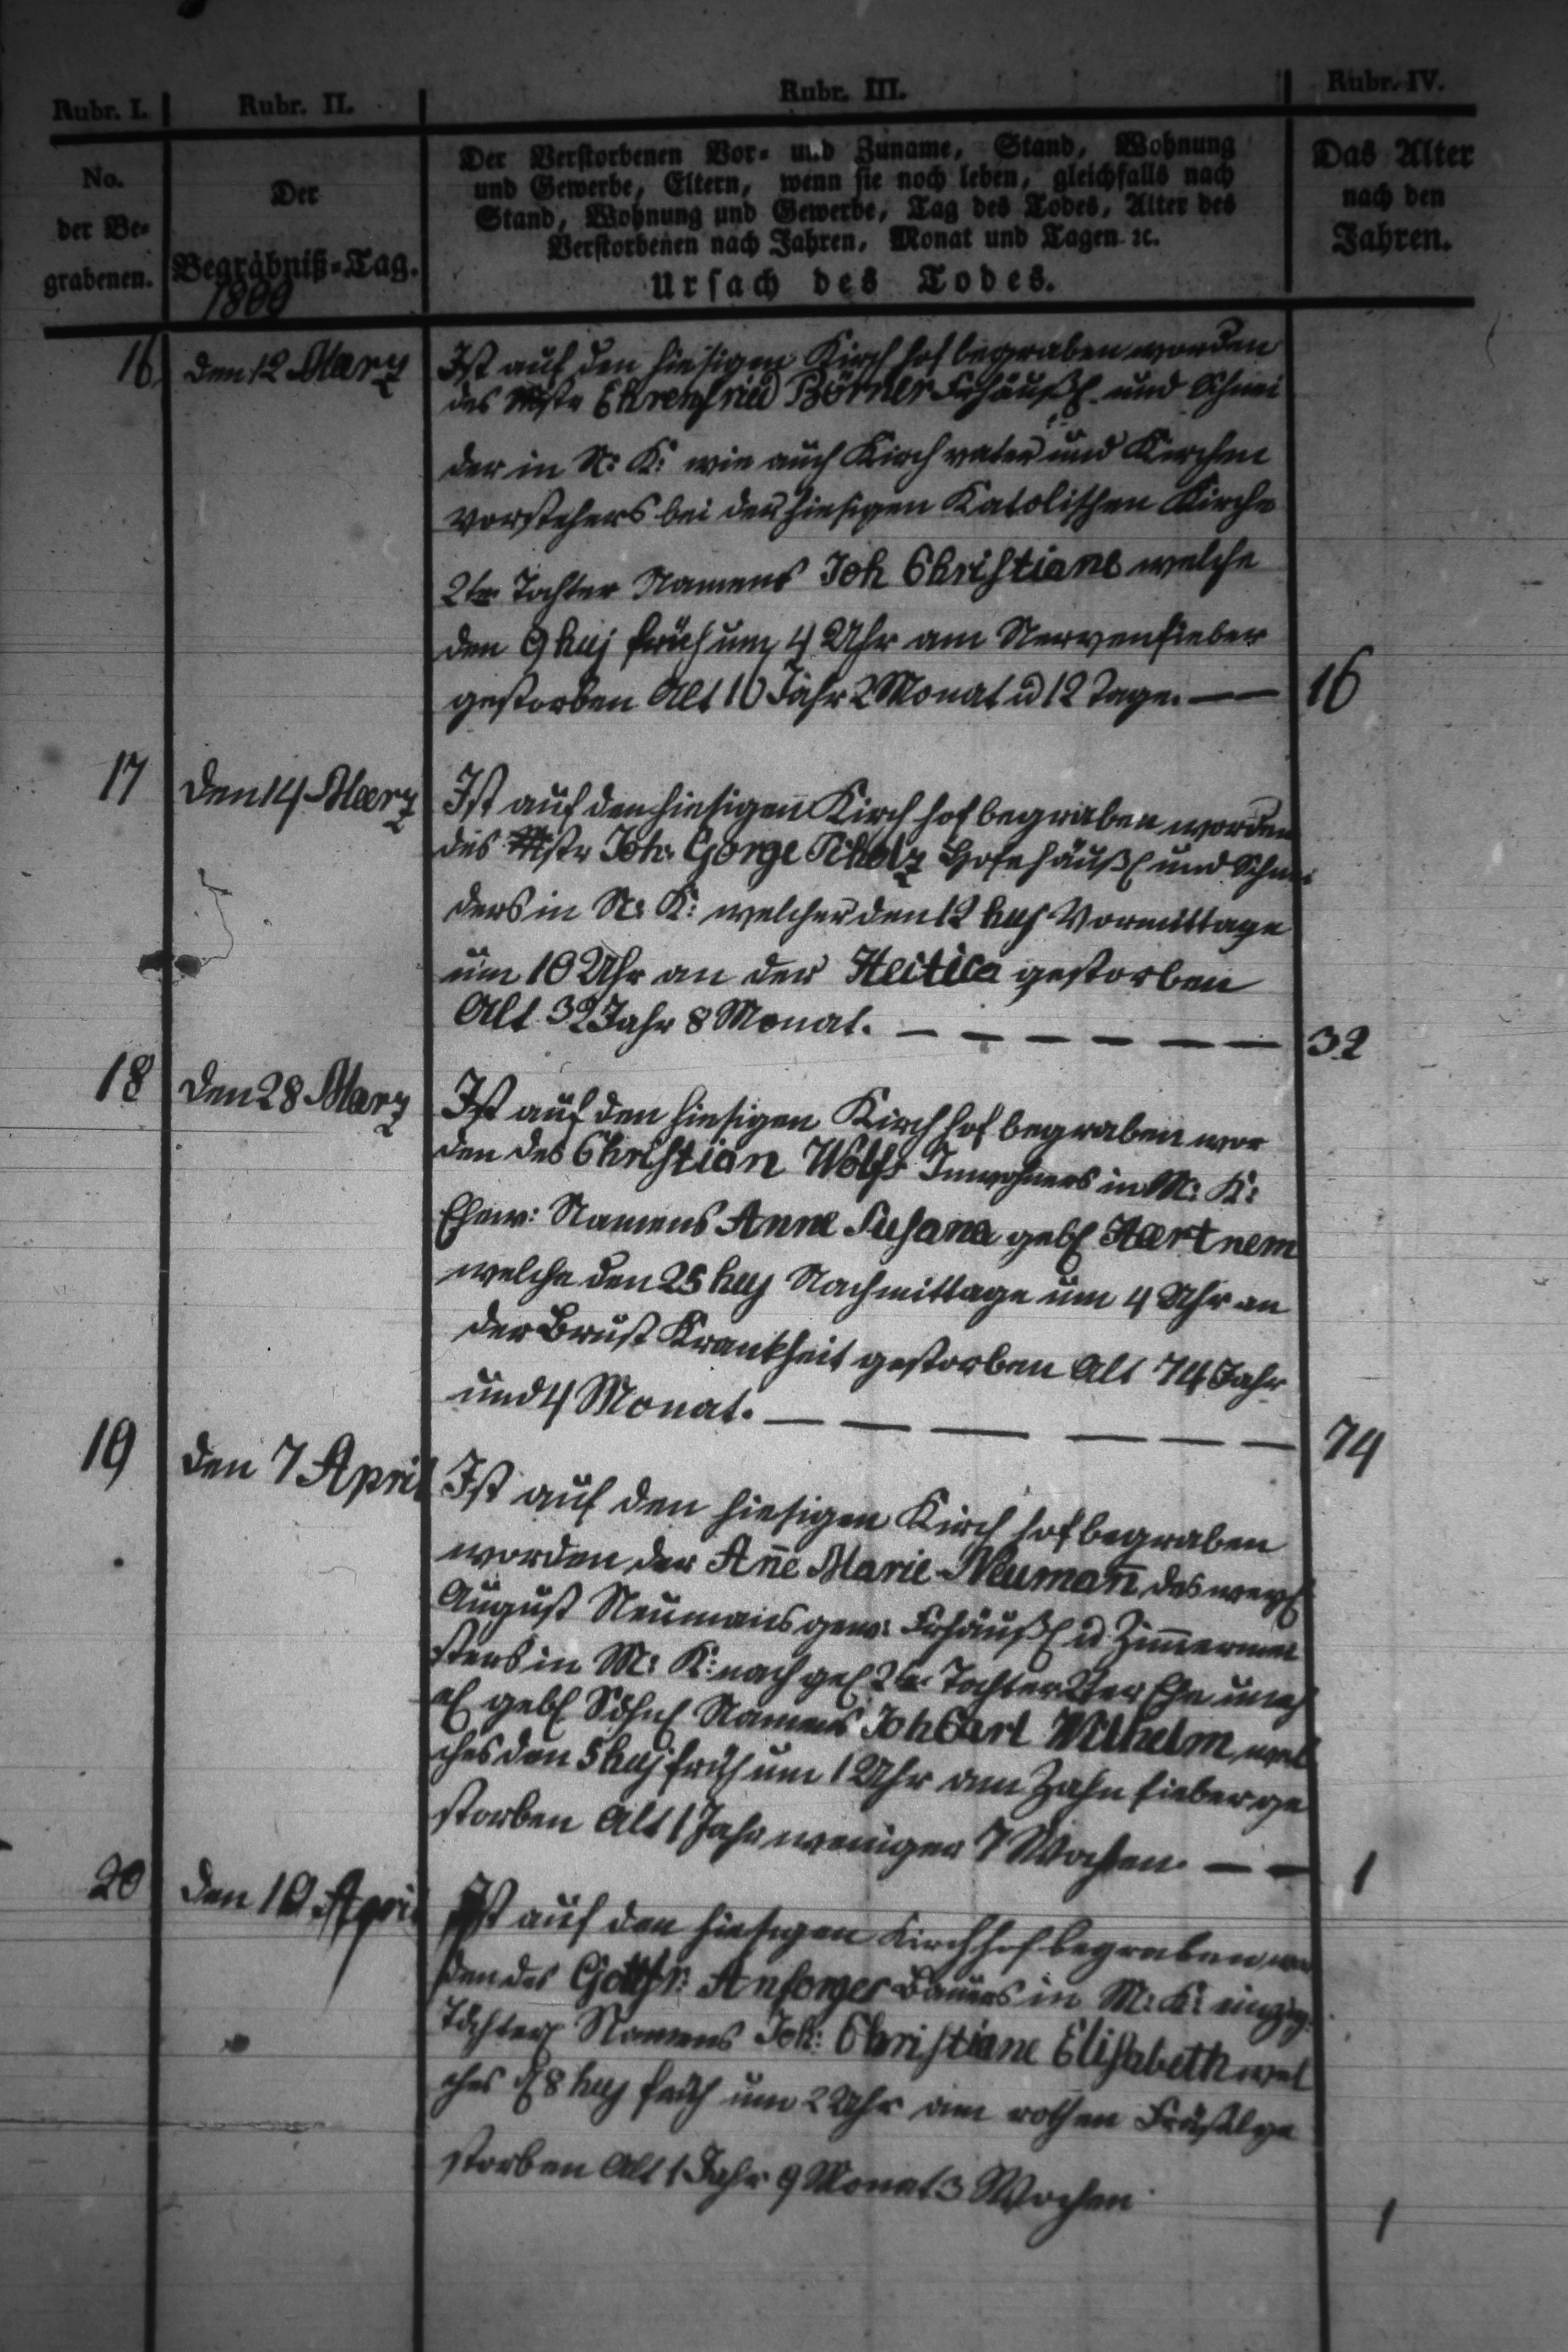 Rubr. I.
Rubr. II.
Rubr. III.
Rubr. IV.
No.
der Be-
grabenen.
Der
Begräbniß-Tag.
1800
Der Verstorbenen Vor- und Zuname, Stand, Wohnung
und Gewerbe, Eltern, wenn sie noch leben, gleichfalls nach
Stand, Wohnung und Gewerbe, Tag des Todes, Alter des
Verstorbenen nach Jahren, Monat und Tagen ꝛc.
Ursach des Todes.
Das Alter
nach den
Jahren.
16 den 12 Marz
Ist auf den hiesigen Kirch hof begraben worden
des Mstr Ehrenfried Börner Frhäußl und Schnei
der in N: K: wie auch Kirch vater und Kirchen
vorstehers bei der hiesigen Katolischen Kirche
2te Tochter Namens Joh Christiane welche
den 9 huj früh um 4 Uhr am Nervenfieber
gestorben Alt 16 Jahr 2 Monat u 12 Tage. — 16
17 den 14 Maerz
Ist auf den hiesigen Kirch hof begraben worden
des Mstr Joh: George Hofehäußl und Schnei
ders in N: K: welcher den 12 huj Vormittage
um 10 Uhr an der gestorben
Alt 32 Jahr 8 Monat. — — — — — — 32
18 den 28 Marz
Ist auf den hiesigen Kirch hof begraben wor
den des Christian Wolfs Inwohners in M: K:
Ehew: Namens Anne Susana geb
welche den 25 huj Nachmittage um 4 Uhr an
der Brust Krankheit gestorben Alt 74 Jahr
und 4 Monat. — — — — — — 74
19 den 7 April
Ist auf den hiesigen Kirch hof begraben
worden der Añe Marie Neumañ des
August Neumans gew: Frhäußl u Zim̃ermei
sters in M: K: nach gel 2te Tochter 2ter Ehe uneh
el geb Söhnl Namens Joh Carl Wilhelm wel
ches den 5 huj früh um 1 Uhr am Zahn fieber ge
storben Alt 1 Jahr weniger 7 Wochen. — — 1
20 den 10 April
Ist auf den hiesigen Kirchhof begraben wor
den des Gottfr: Ansorges Bauers in M: K: einzig:
Töchterl Namens Joh: Christiane Elisabeth wel
ches d 8 huj früh um 2 Uhr am rothen ge
storben Alt 1 Jahr 9 Monat 3 Wochen 1